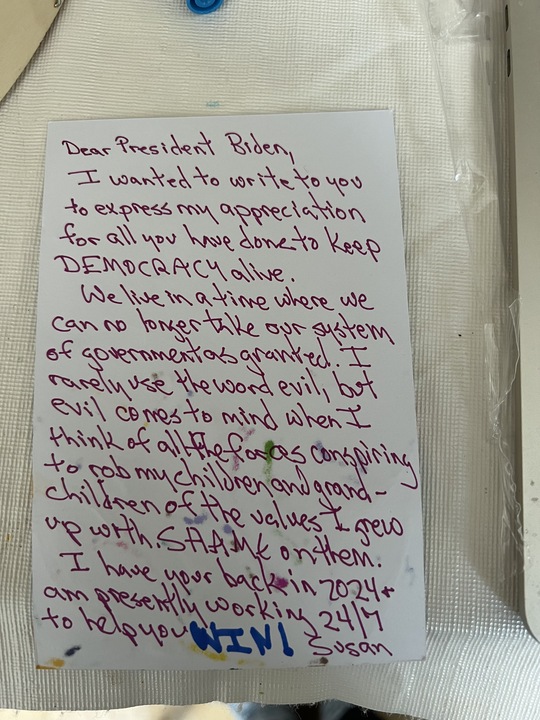 Dear President Biden,
I wanted to write to you
to express my appreciation
for all you have done to keep
DEMOCRACY alive.
We live in a time where we
can no longer take our system
of government as granted. I
rarely use the word evil, but
evil comes to mind when I
think of all the forces conspiring
to rob my children and grand-
children of the values I grew
up with. SHAME on them.
I have your back in 2024 +
am presently working 24/7
to help you WIN!
Susan